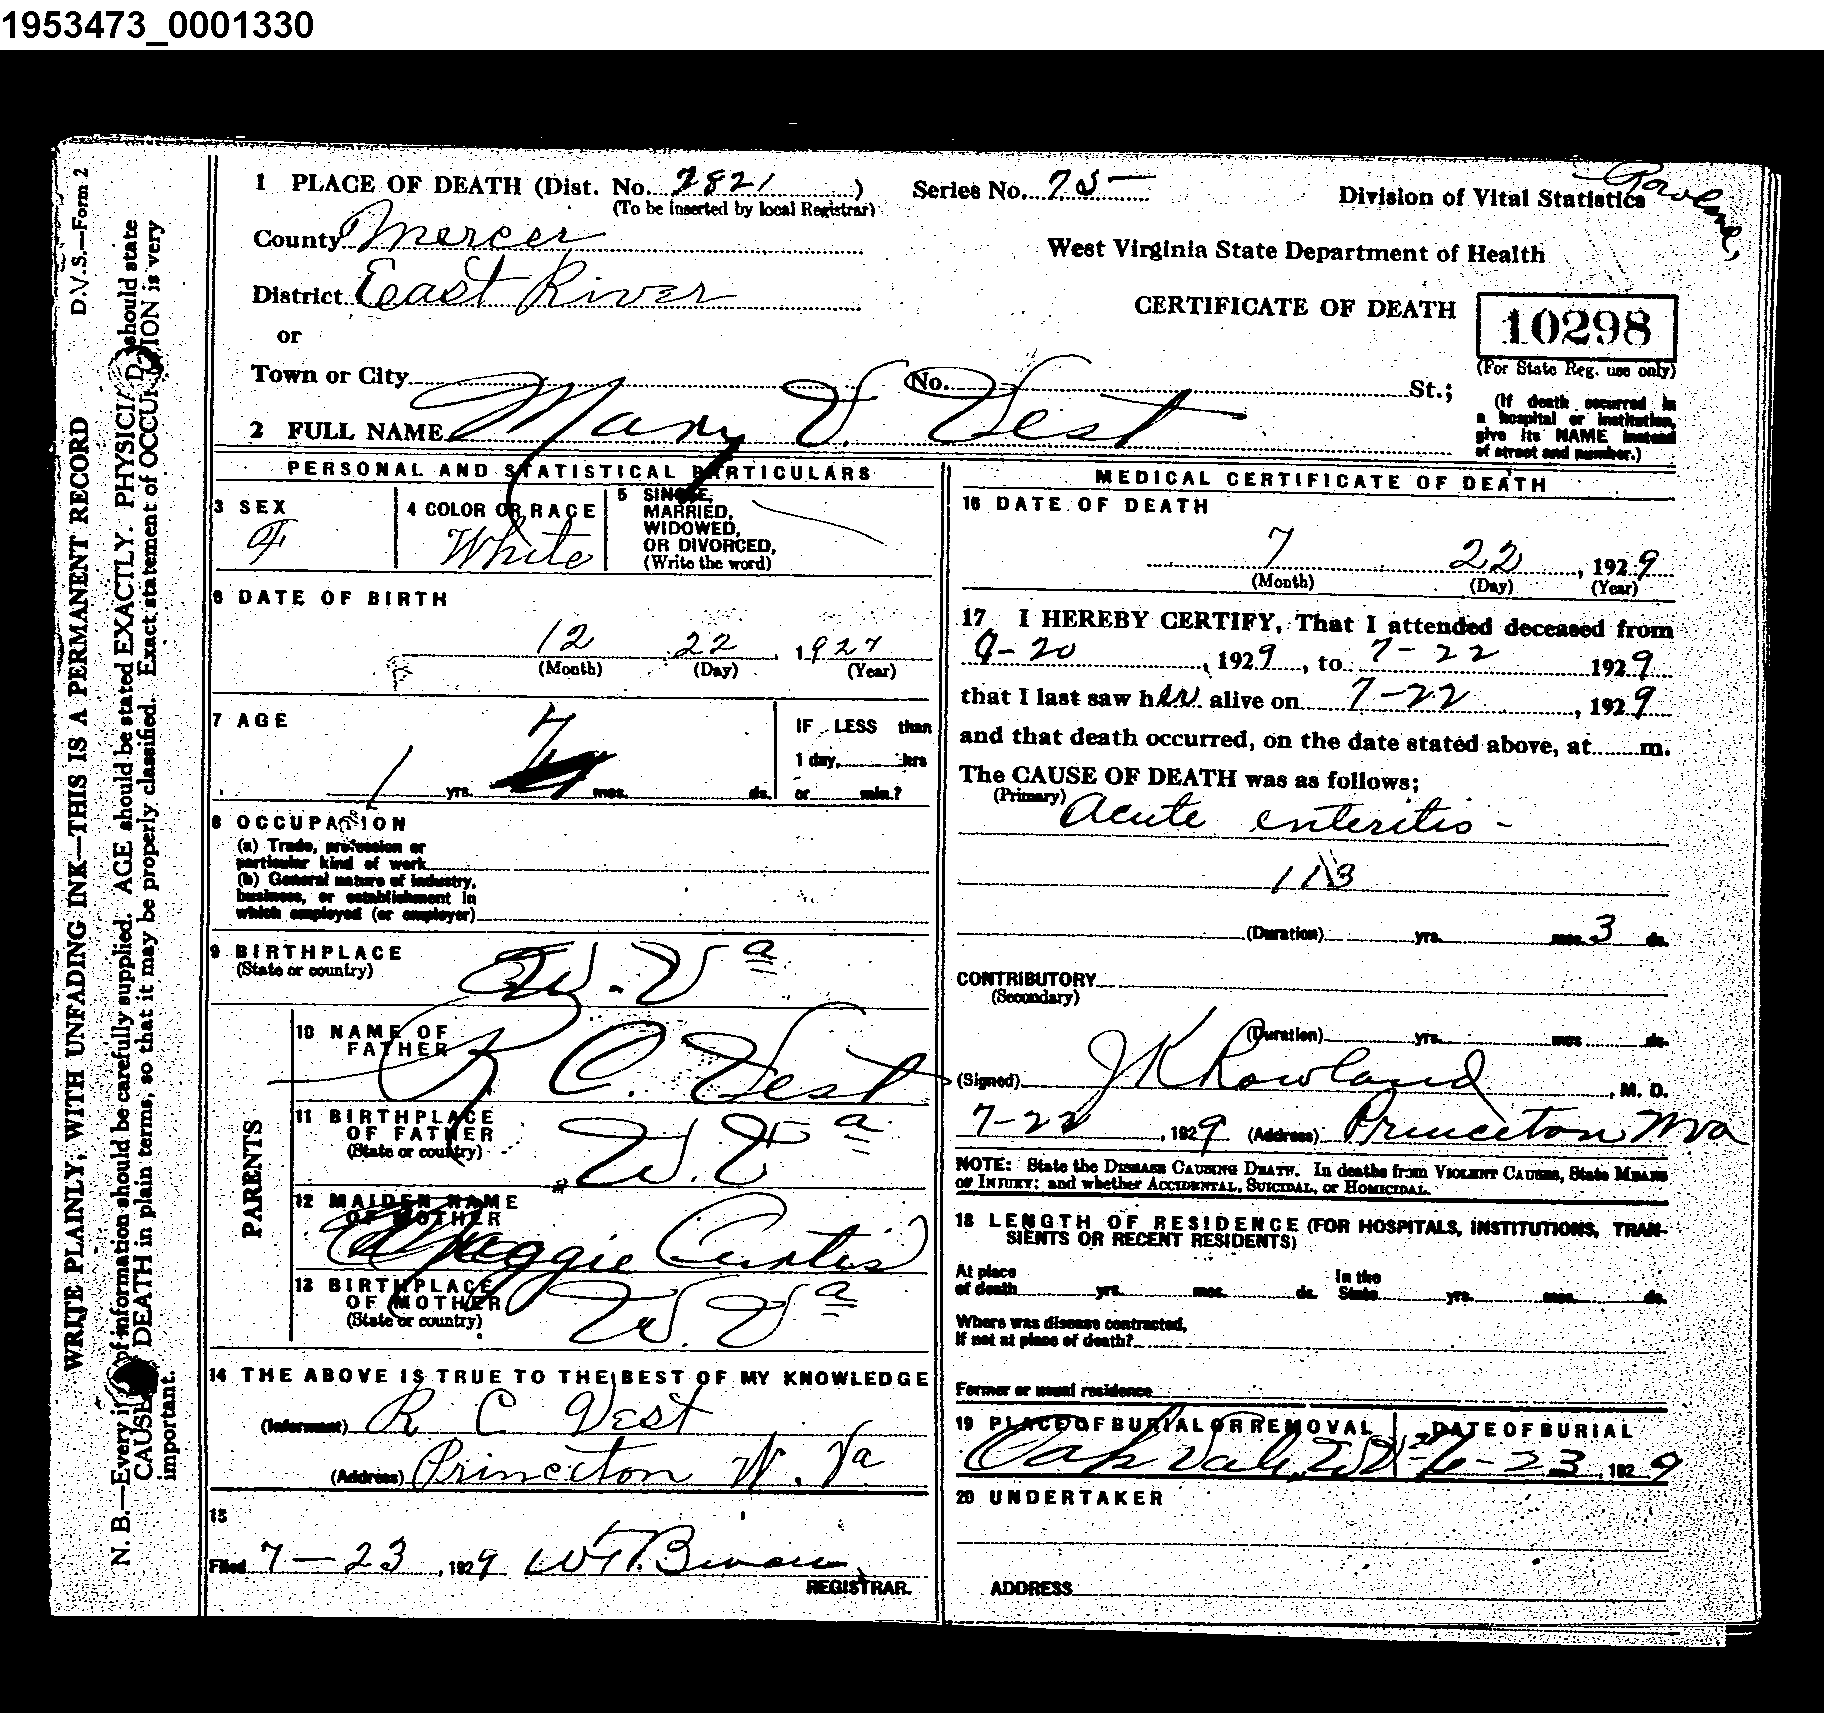 1953473_0001330
1 PLACE OF DEATH (Dist. No. 2821 )
(To be inserted by local Registrar)
Series No. 75
Division of Vital Statistics
County Mercer
West Virginia State Department of Health
District East River
CERTIFICATE OF DEATH
10298
(For State Reg. use only)
or
Town or City No. St.;
(If death occurred in
a hospital or institution,
give its NAME instead
of street and number.)
2 FULL NAME Mary V. Vest
PERSONAL AND STATISTICAL PARTICULARS
3 SEX
F
4 COLOR OR RACE
White
5 SINGLE,
MARRIED,
WIDOWED,
OR DIVORCED,
(Write the word)
6 DATE OF BIRTH
12 22, 1927
(Month) (Day) (Year)
7 AGE
1 yrs. 7 mos. ds.
IF LESS than
1 day, hrs
or min.?
8 OCCUPATION
(a) Trade, profession or
particular kind of work
(b) General nature of industry,
business, or establishment in
which employed (or employer)
9 BIRTHPLACE
(State or country)
W. Va
PARENTS
10 NAME OF
FATHER
R C. Vest
11 BIRTHPLACE
OF FATHER
(State or country)
W. Va
12 MAIDEN NAME
OF MOTHER
Maggie Curtis
13 BIRTHPLACE
OF MOTHER
(State or country)
W. Va
14 THE ABOVE IS TRUE TO THE BEST OF MY KNOWLEDGE
(Informant) R C Vest
(Address) Princeton W. Va
15
Filed 7-23, 1929
REGISTRAR.
MEDICAL CERTIFICATE OF DEATH
16 DATE OF DEATH
7 22, 1929
(Month) (Day) (Year)
17 I HEREBY CERTIFY, That I attended deceased from
7-20, 1929, to 7-22 1929
that I last saw her alive on 7-22, 1929
and that death occurred, on the date stated above, at m.
The CAUSE OF DEATH was as follows;
(Primary) Acute enteritis -
113
(Duration) yrs. mos. 3 ds.
CONTRIBUTORY
(Secondary)
(Duration) yrs. mos ds.
(Signed) J K Rowland, M. D.
7-22, 1929 (Address) Princeton Wva
NOTE: State the DISEASE CAUSING DEATH. In deaths from VIOLENT CAUSES, State MEANS
OF INJURY; and whether ACCIDENTAL, SUICIDAL, or HOMICIDAL.
18 LENGTH OF RESIDENCE (FOR HOSPITALS, INSTITUTIONS, TRAN-
SIENTS OR RECENT RESIDENTS)
At place
of death yrs. mos. ds.
In the
State yrs. mos. ds.
Where was disease contracted,
If not at place of death?
Former or usual residence
19 PLACE OF BURIAL OR REMOVAL
Oak Vale,
DATE OF BURIAL
-23, 1929
20 UNDERTAKER
ADDRESS
D.V.S.—Form 2
WRITE PLAINLY, WITH UNFADING INK—THIS IS A PERMANENT RECORD
N. B.—Every of information should be carefully supplied. AGE should be stated EXACTLY. PHYSICIA should state
CAUSE DEATH in plain terms, so that it may be properly classified. Exact statement of OCCUPATION is very
important.